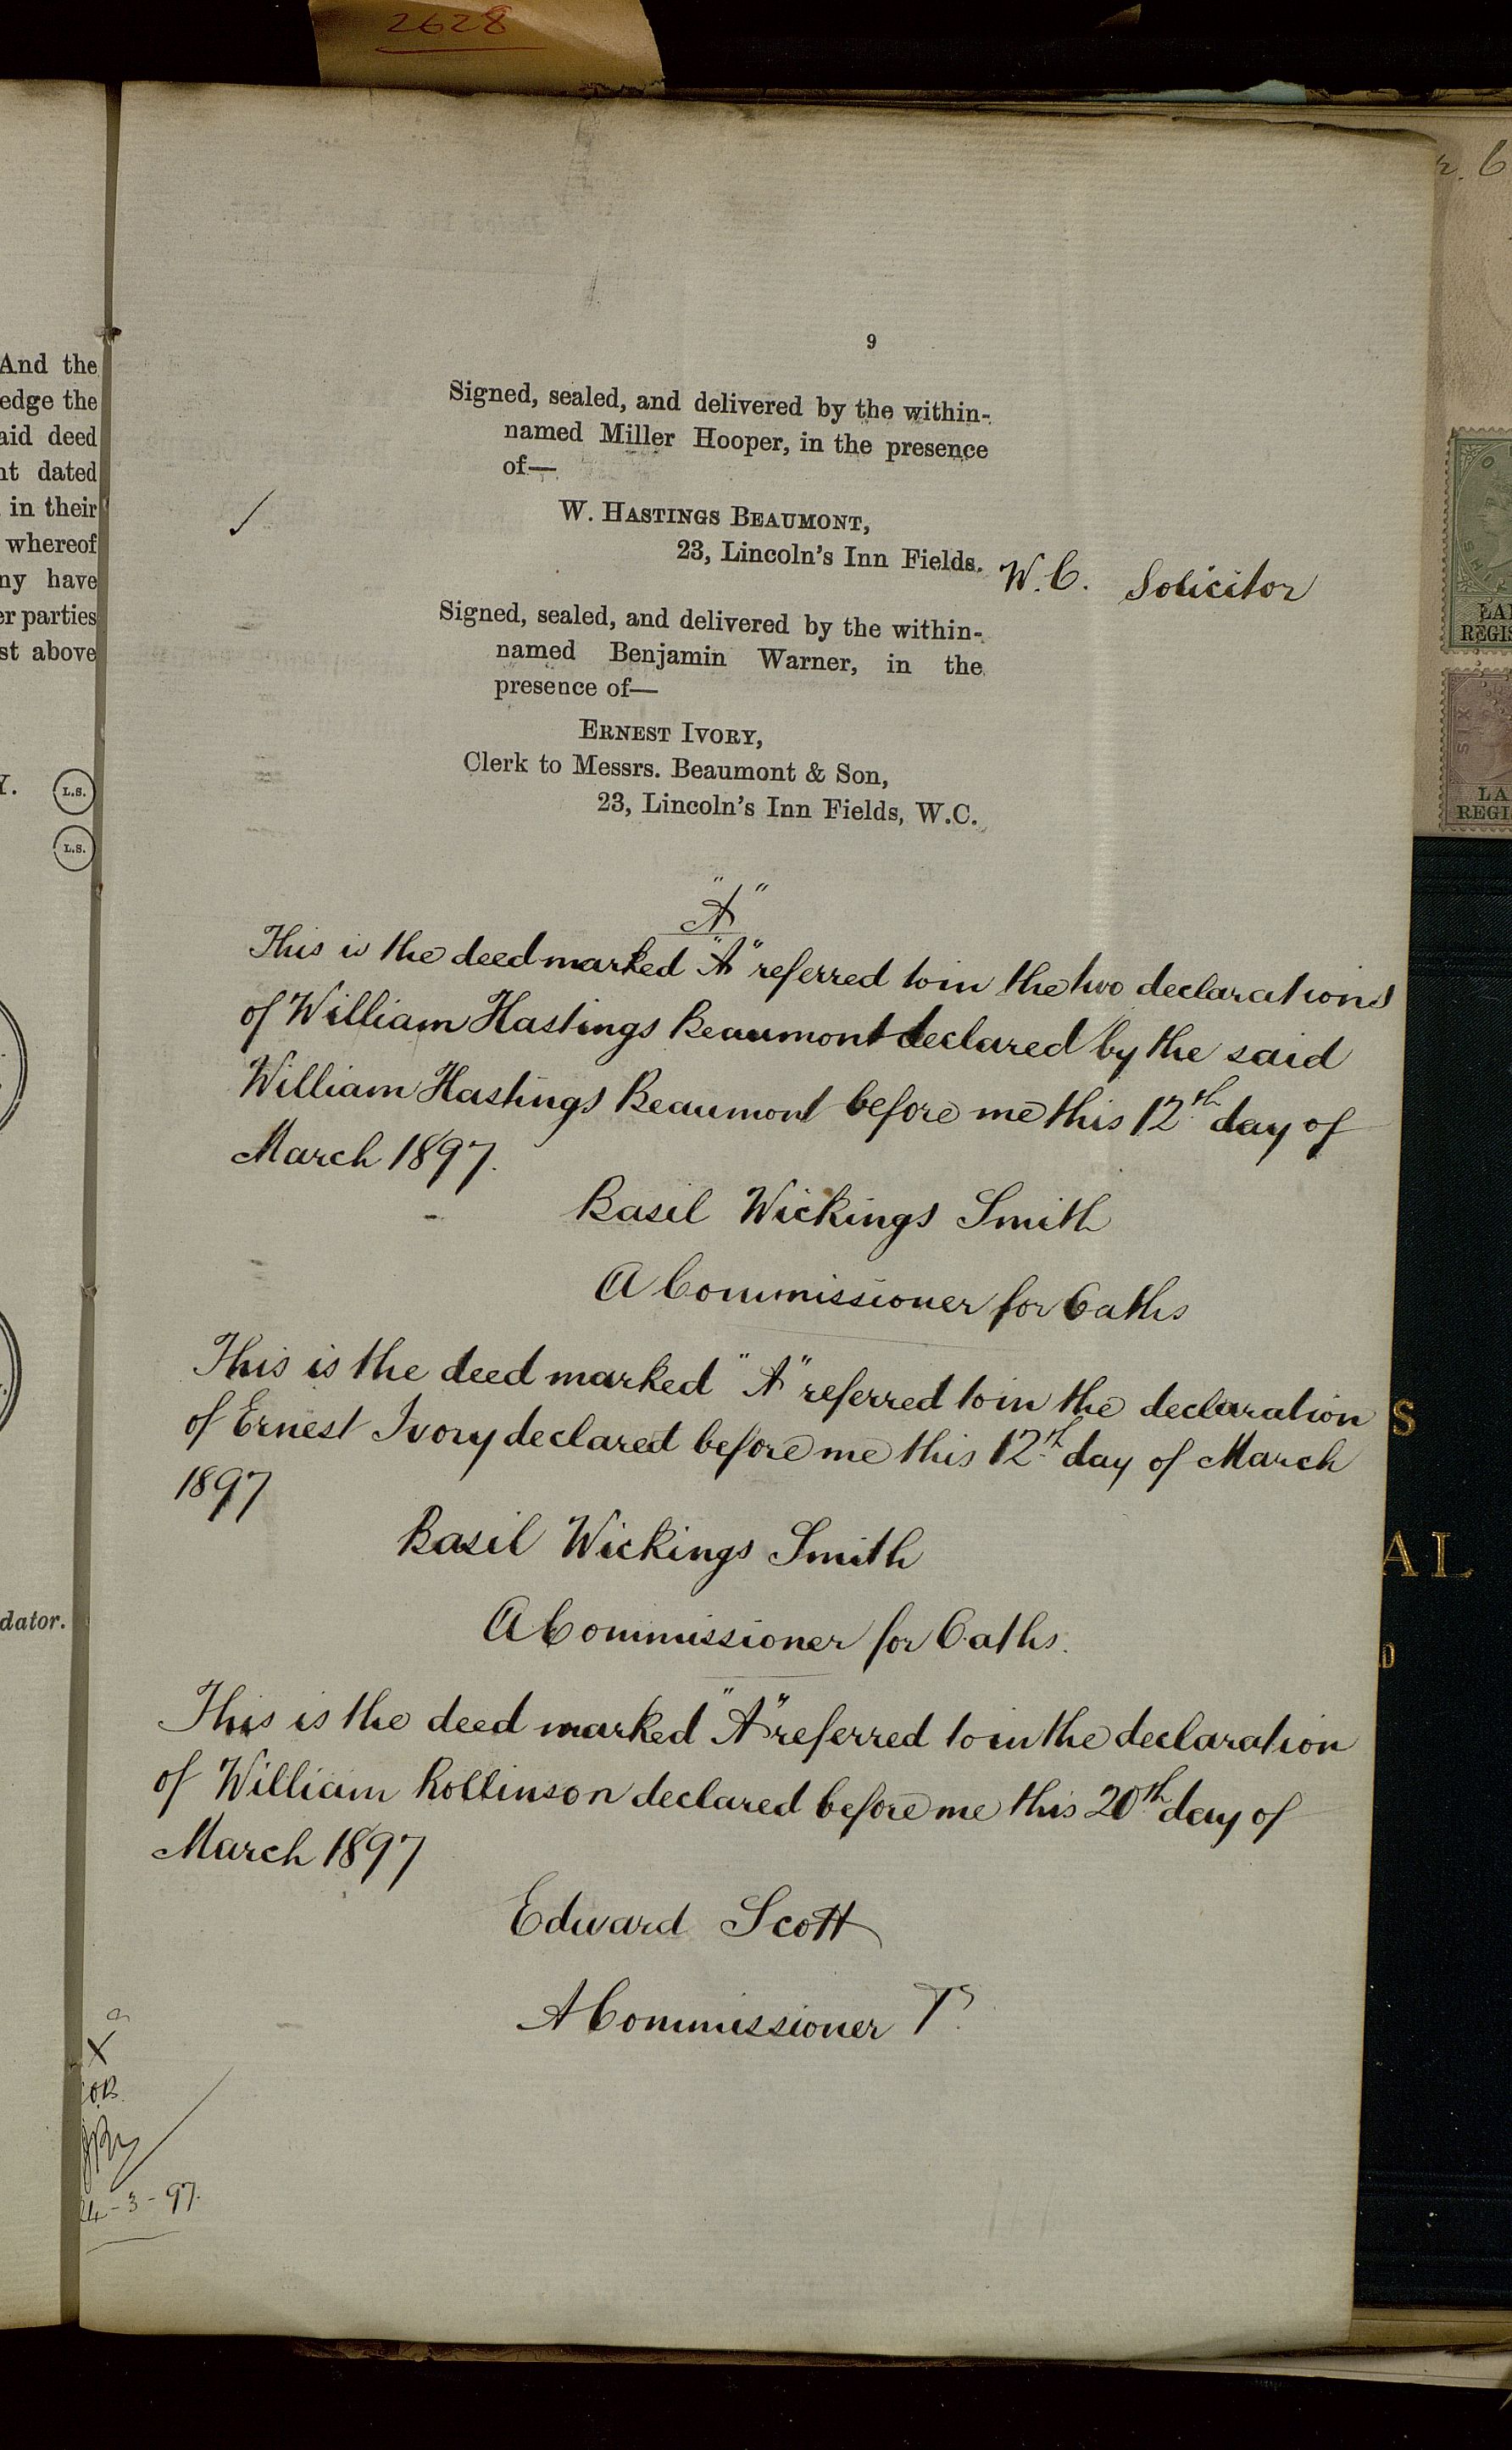 2628
And the
edge the
aid deed
nt dated
in their
whereof
ny have
er parties
st above
Y. L.S.
L.S.
dator.
9
Signed, sealed, and delivered by the within-
named Miller Hooper, in the presence
of—
W. HASTINGS BEAUMONT,
23, Lincoln's Inn Fields. W.C. Solicitor
Signed, sealed, and delivered by the within-
named Benjamin Warner, in the
presence of—
ERNEST IVORY,
Clerk to Messrs. Beaumont & Son,
23, Lincoln's Inn Fields, W.C.
"A"
This is the deed marked "A" referred to in the two declarations
of William Hastings Beaumont declared by the said
William Hastings Beaumont before me this 12th day of
March 1897.
Basil Wickings Smith
A Commissioner for Oaths
This is the deed marked "A" referred to in the declaration
of Ernest Ivory declared before me this 12th day of March
1897
Basil Wickings Smith
A Commissioner for Oaths.
This is the deed marked "A" referred to in the declaration
of William Rollinson declared before me this 20th day of
March 1897
Edward Scott
A Commissioner
24-3-97.
LA
REGIS
SIX
LA
REGI
S
AL
D